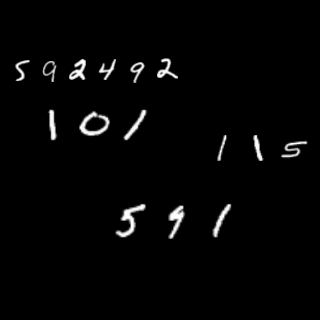 592492
101
115
591